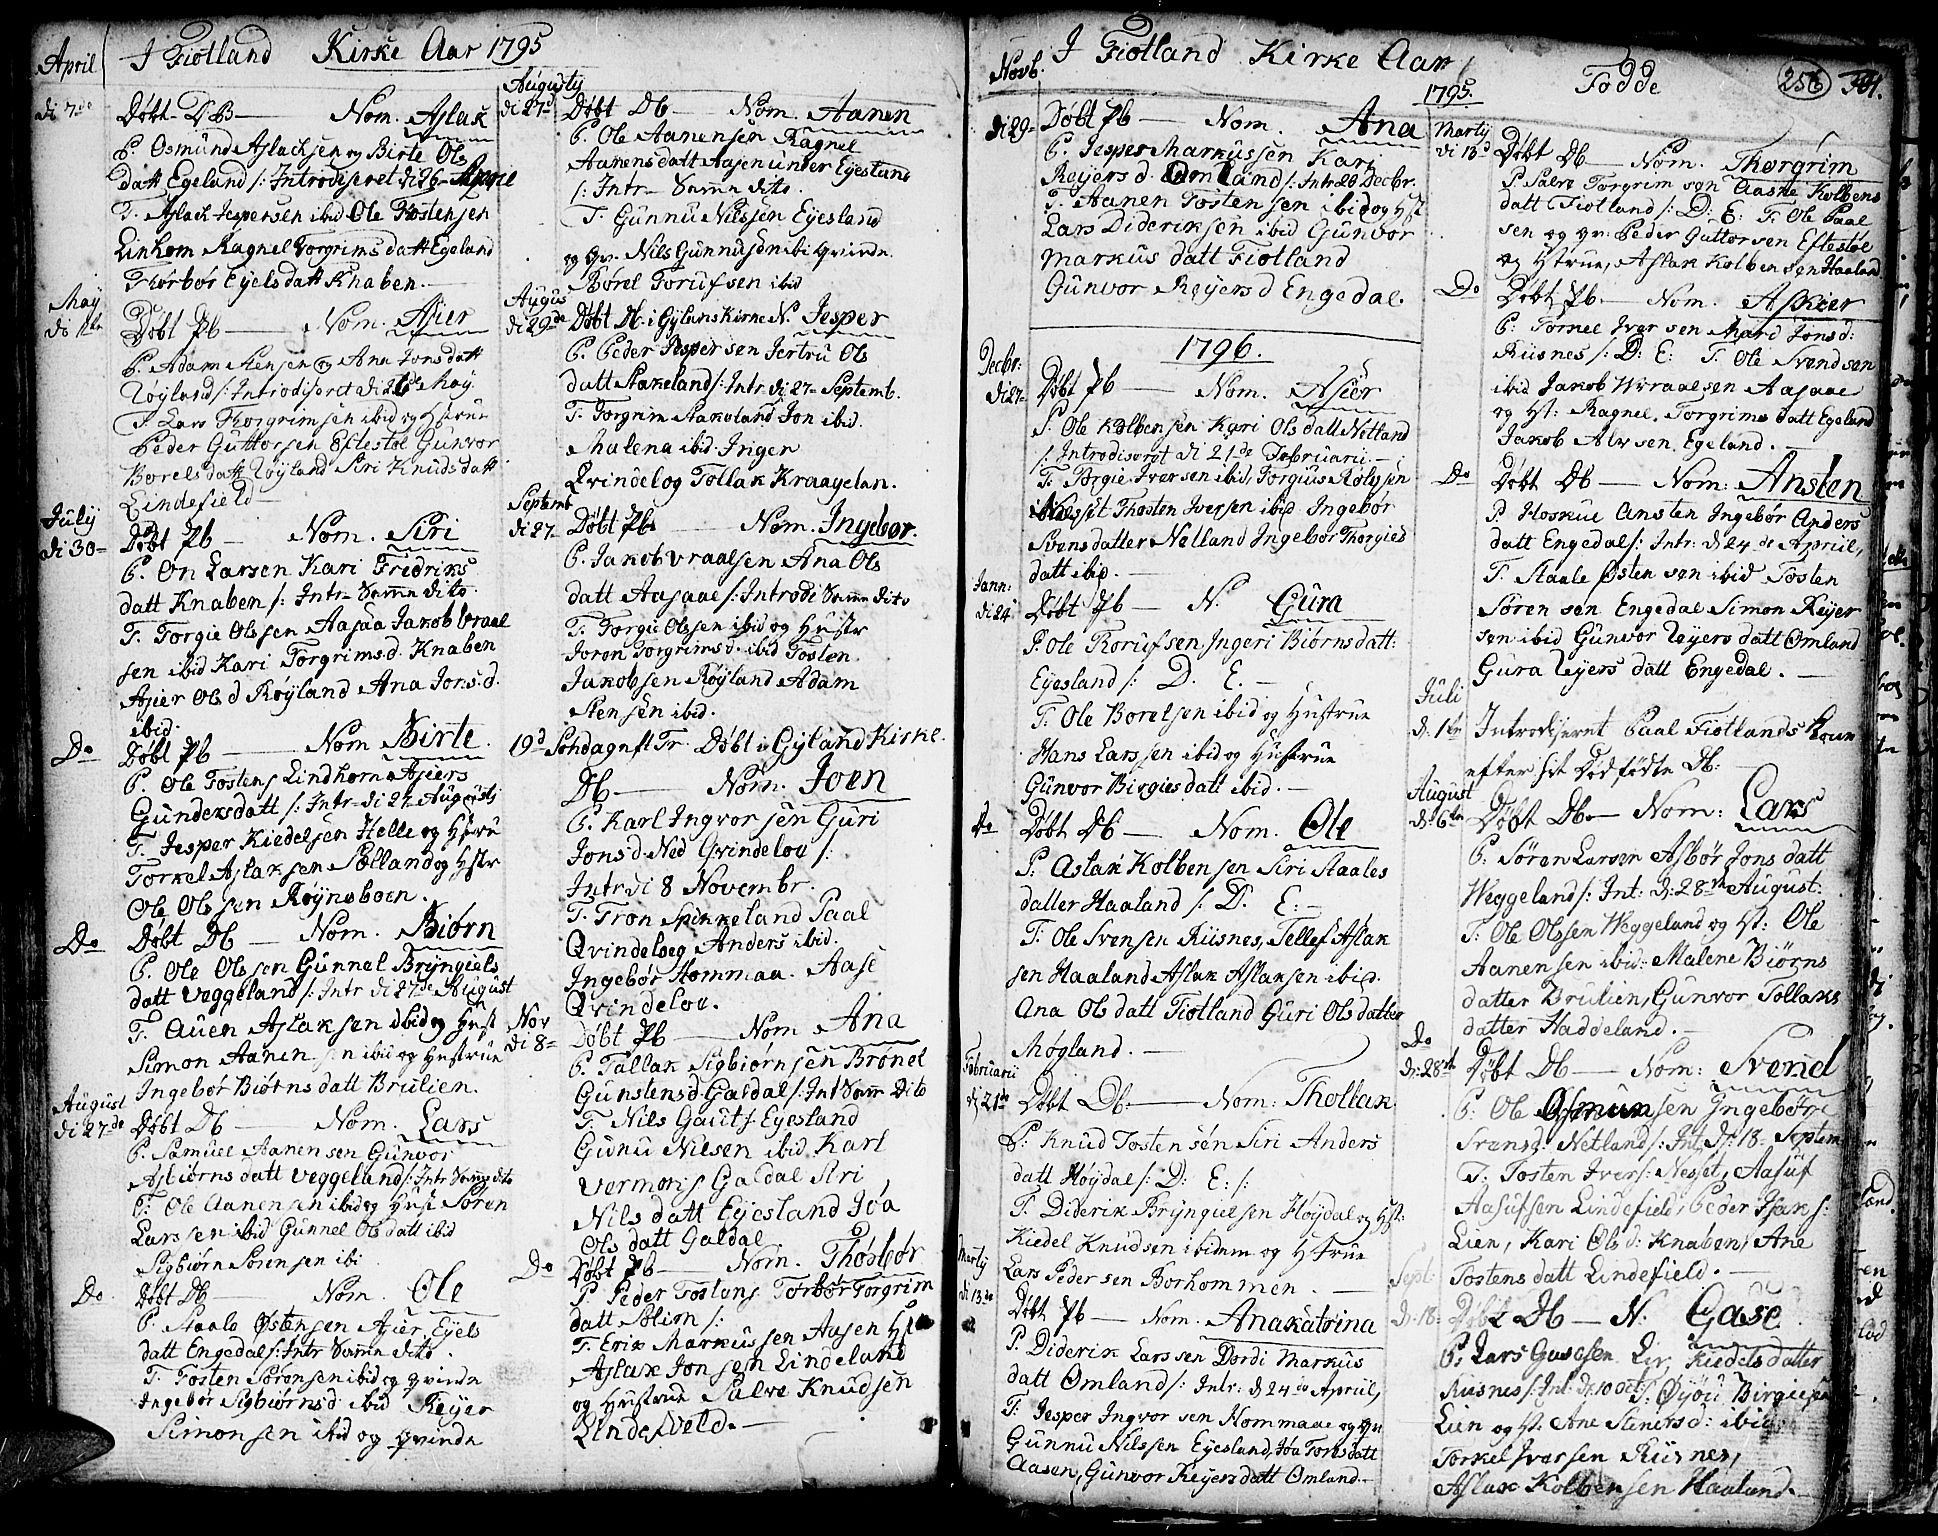 I Fiotland Kirke Aar 1795
April
di 7de
Døbt DB — Nom. Aslak
P. Osmund Aslachsen og Birte Ols
datt Egeland /: Introdiseret di 26 Aprie
T. Aslach Jespersen ibid Ole Tostensen
Linhom Ragnel Torgrims datt Egeland
Thorbor Eyels datt Knaben.
May
Døbt Pb — Nom. Asier
P. Adam Stensen og Ana Jons datt
Røyland /: Introdiseret di 26de May
T. Lars Thorgrimsen ibid og Hstrue
Peder Guttorsen Eftestøl Gunvor
Borels datt Røyland Siri Knuds datt
Lindefield
July
di 30
Døbt Pb — Nom. Siri
P. On Larsen Kari Fredriks
datt Knaben /: Intr. Samm dito
T. Torgie Olssen Aasaa Jakob Vraal
sen ibid Kari Torgrimsd. Knaben
Asier Ols d Røyland Ana Jons.d.
ibid.
Do
Døbt Pb — Nom Birte.
P. Ole Tostens Lindhom Asiers
Gundersdatt /: Intr di 27 Augusti
T. Jesper Kiedelsen Helle og Hstru
Torkel Aslaksen Sælland og Hstr
Ole Olssen Røyneboen.
Do
Døbt Db — Nom. Biørn
P. Ole Olssen Gunnel Bryngiels
datt Veggeland /: Intr di 27de August
T. Auen Aslaksen ibid og Hust
Simon Aanensen ibid og Hustrue
Ingebør Biørns datt Brulien.
August
di 27de
Døbt Db — Nom. Lars
P. Samuel Aanensen Gunvor
Asbiørns datt Veggeland /: Intr Samm dito
T. Ole Aanensen ibid og Hust Søren
Larssen ibid Gunnel Ols datt ibid
Sigbiørn Sørensen ibi
Do.
Døbt Db — Nom. Ole
P. Staale Østensen Asier Eyels
datt Engedal /: Intr Samm dito.
T. Tosten Sørensen ibid og qvinde
Ingebør Sigbiørnsd ibid Reyer
Simonsen ibid og qvinde
Augusty
di 27
Døbt Db — Nom. Aanen
P. Ole Aanensen Ragnel
Aanens datt Aasen under Eyesland
/: Intr Samm dito.
T. Gunnu Nilssen Eyesland
og Nils Gunnusøn ibi qvinde
Borel Torufsen ibid
Augus
di 29de
Døbt Db. i Gylans Kirke N. Jesper
P. Peder Jespersen Jertru Ols
datt Stakeland /: Intr. di 27 Septemb.
T. Torgrim Stakeland Jon ibid.
Malena ibid. Inger
Qvindelog Tollak Kraagelan.
Septemb
di 27
Døbt Pb — Nom. Ingebør.
P. Jakob Vraalsen Ana Ols
datt Aasaal /: Introdi Samm dito
T. Torgie Olssen ibid og Hustr
Joren Torgrimsd. ibid Tosten
Jakobsen Røyland Adam
Stensen ibid.
19d Søndag eft Tr. Døbt i Gyland Kirke.
Db — Nom. Joen
P. Karl Ingvorsen Guri
Jons d. Ned Qvindelou /:
Intr di 8 Novembr.
T. Tron Spikkeland Paal
Qvindelog Anders ibid.
Ingebør Hommaa. Aase
Qvindelou.
Nov
di 8
Døbt Pb — Nom Ana
P. Tallak Sigbiørnsen Brønel
Gunstensd Galdal /: Int Samm Dito
T. Nils Gautsf Eyesland
Gunu Nilsen ibid Karl
Vermons Galdal Siri
Nils datt Eyesland Joa
Ols datt Galdal
Do
Døbt Pb — Nom. Thosbør
P. Peder Tostens Torbør Torgrim
datt Solim /:
T. Erik Markussen Aasen
Aslak Jonsen Lindeland
og Hustrue Salve Knudsen
Lindefveld. —
I Fiotland Kirke Aar 1795. Fødde 256
Novb.
di 29
Døbt Pb — Nom. Ana
P. Jesper Markussen Kari
Reyers d. Omland /: Intr 26 Decbr.
T. Aanen Tostensen ibid og Hst
Lars Dideriksen ibid Gunvor
Markus datt Fiotland
Gunvor Reyers d Engedal.
1796.
Decbr:
di 27
Døbt Pb — Nom. Asier
P. Ole Kolbensen Kari Ols datt Netland
/: Introdisert di 21de Februarii. —
T. Torgie Iversen ibid, Torgius Rolssen
Nesset Thosten Iversen ibid Ingebør
Svensdatter Netland Ingebør Thorgies
datt ibid. —
Jann:
di 24
Døbt Pb — N. Gura
P. Ole Torufsen, Ingeri Biørns datt:
Eyesland /: D. E. —
T. Ole Borelsen ibid og Hustrue
Hans Larssen ibid og Hustrue
Gunvor Birgies datt ibid. —
Do
Døbt Db — Nom. Ole
P. Aslak Kolbensen Siri Staales
datter Haaland /: D. E: —
T. Ole Svensen Risnes, Tellef Aslak
sen Haaland Aslak Aslaksen ibid.
Ana Ols datt Fiotland Guri Ols datter
Møgland. —
Februarii
di 21de
Døbt Db. — Nom: Thollak
P: Knud Tostensøn Siri Anders
datt Høydal /: D: E: /:
T. Diderik Bryngielsen Høydal og Hst:
Kiedel Knudsen ibidem og Hstrue
Lars Pedersen Borhommen. —
Marty
di 13de
Døbt Pb — Nom. Anakatrina
P. Diderik Larssen Dordi Markus
datt Omland /: Intr: d 24de Apriil,
T. Jesper Ingvorsen Hommaae og
Gunnu Nilssen Eyesland, Joa Torisdatt
Aasen, Gunvor Reyers datt Omland. —
Marty
di 13d
Døbt Db — Nom. Thorgrim
P. Salve Torgrimsøn Aasne Kolbens
datt Fiotland /: D: E: T. Ole Paal
sen og qv: Peder Guttorsen Eftestøl
og Hstrue, Aslak Kolbensøn Haaland
Do
Døbt Pb. — Nom. Askier
P: Tornel Iversen Mari Jonsd:
Risnes /: D: E: T. Ole Svendsen
ibid Jakob Wraalsen Aasaae
og Hst: Ragnel. Torgrims datt Egeland
Jakob Alvsen Egeland. —
Do
Døbt Db — Nom: Ansten
P. Hoskul Ansten Ingebør Anders
datt Engedal /: Intr: d 24de Apriil,
T. Staale Østensøn ibid Tosten
Sørensøn Engedal Simon Reyer
søn ibid Gunvor Reyers datt Omland
Gura Reyers datt Engedal. —
Juli
Introdiseret Paal Fiotlands Koune
efter sit Dødfødte Db:
August
d. 6te
Døbt Db — Nom: Lars
P: Søren Larsen Asbør Jons datt
Weggeland /: Int: d: 28de August:
T: Ole Olssen Weggeland og Hst: Ole
Aanensen ibid: Malene Biørns
datter Brulien, Gunvor Tollaks
datter Haddeland. —
Do
d: 28de
Døbt Db — Nom: Svend
P: Ole Osmunsen Ingebøre
Svensd: Netland /: Int. d: 18 Septem
T: Tosten Ivers: Nesset, Aasuf
Aasufsen Lindefield, Peder Isaks:
Lien, Kari Ols d: Knaben, Ane
Tostens datt Lindefield. —
Sept:
d: 18
Døbt Db — N: Gase
P: Lars Gasesen Liv, Kiedels datter
Risnes /: Int: d: 10 Oct: T: Øyou Birgiesøn
Lien og Hst: Ane Steners d: ibid
Torkel Iversen Risnes,
Aslak Kolbensen Haaland. —